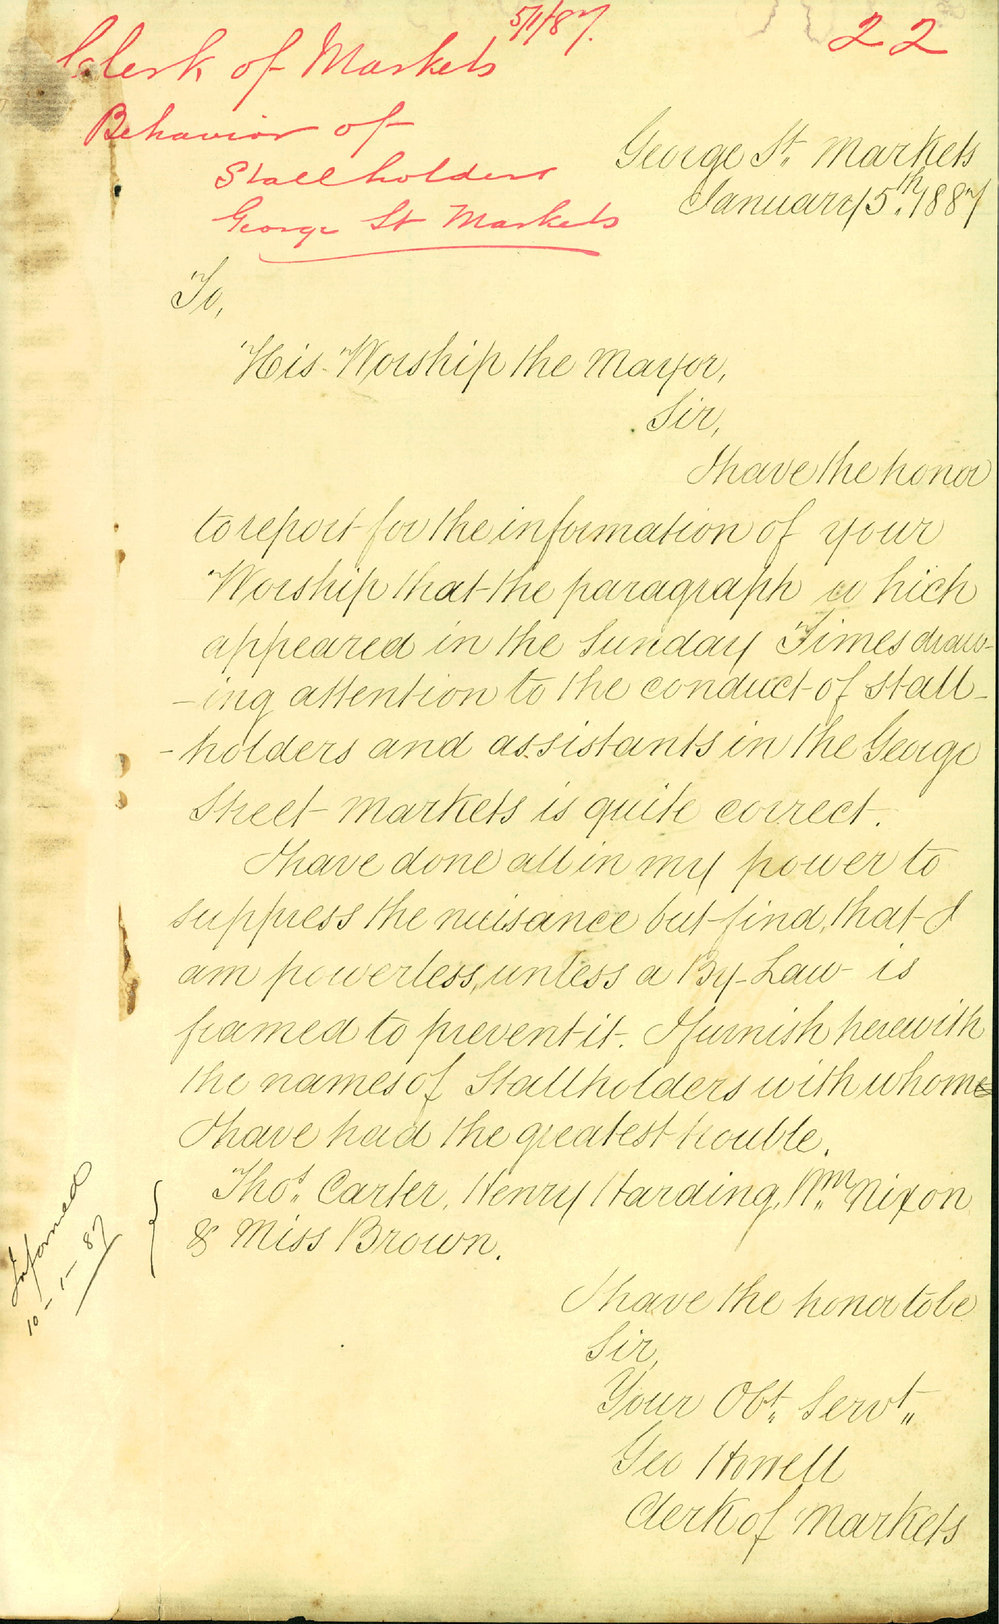 5/1/87.
22
Clerk of Markets
Behavior of
Stallholders
George St Markets
George St. Markets
January 5th. 1887
To,
His Worship the Mayor,
Sir,
I have the honor
to report for the information of your
Worship that the paragraph which
appeared in the Sunday Times draw-
-ing attention to the conduct of stall-
-holders and assistants in the George
Street Markets is quite correct.
I have done all in my power to
suppress the nuisance but find, that I
am powerless, unless a By-Law is
framed to prevent it. I furnish herewith
the names of Stallholders with whom
I have had the greatest trouble.
Thos. Carter, Henry Harding, Wm. Nixon
& Miss Brown.
Informed
10-1-87
I have the honor to be
Sir,
Your Obt. Servt.
Geo Howell
Clerk of Markets